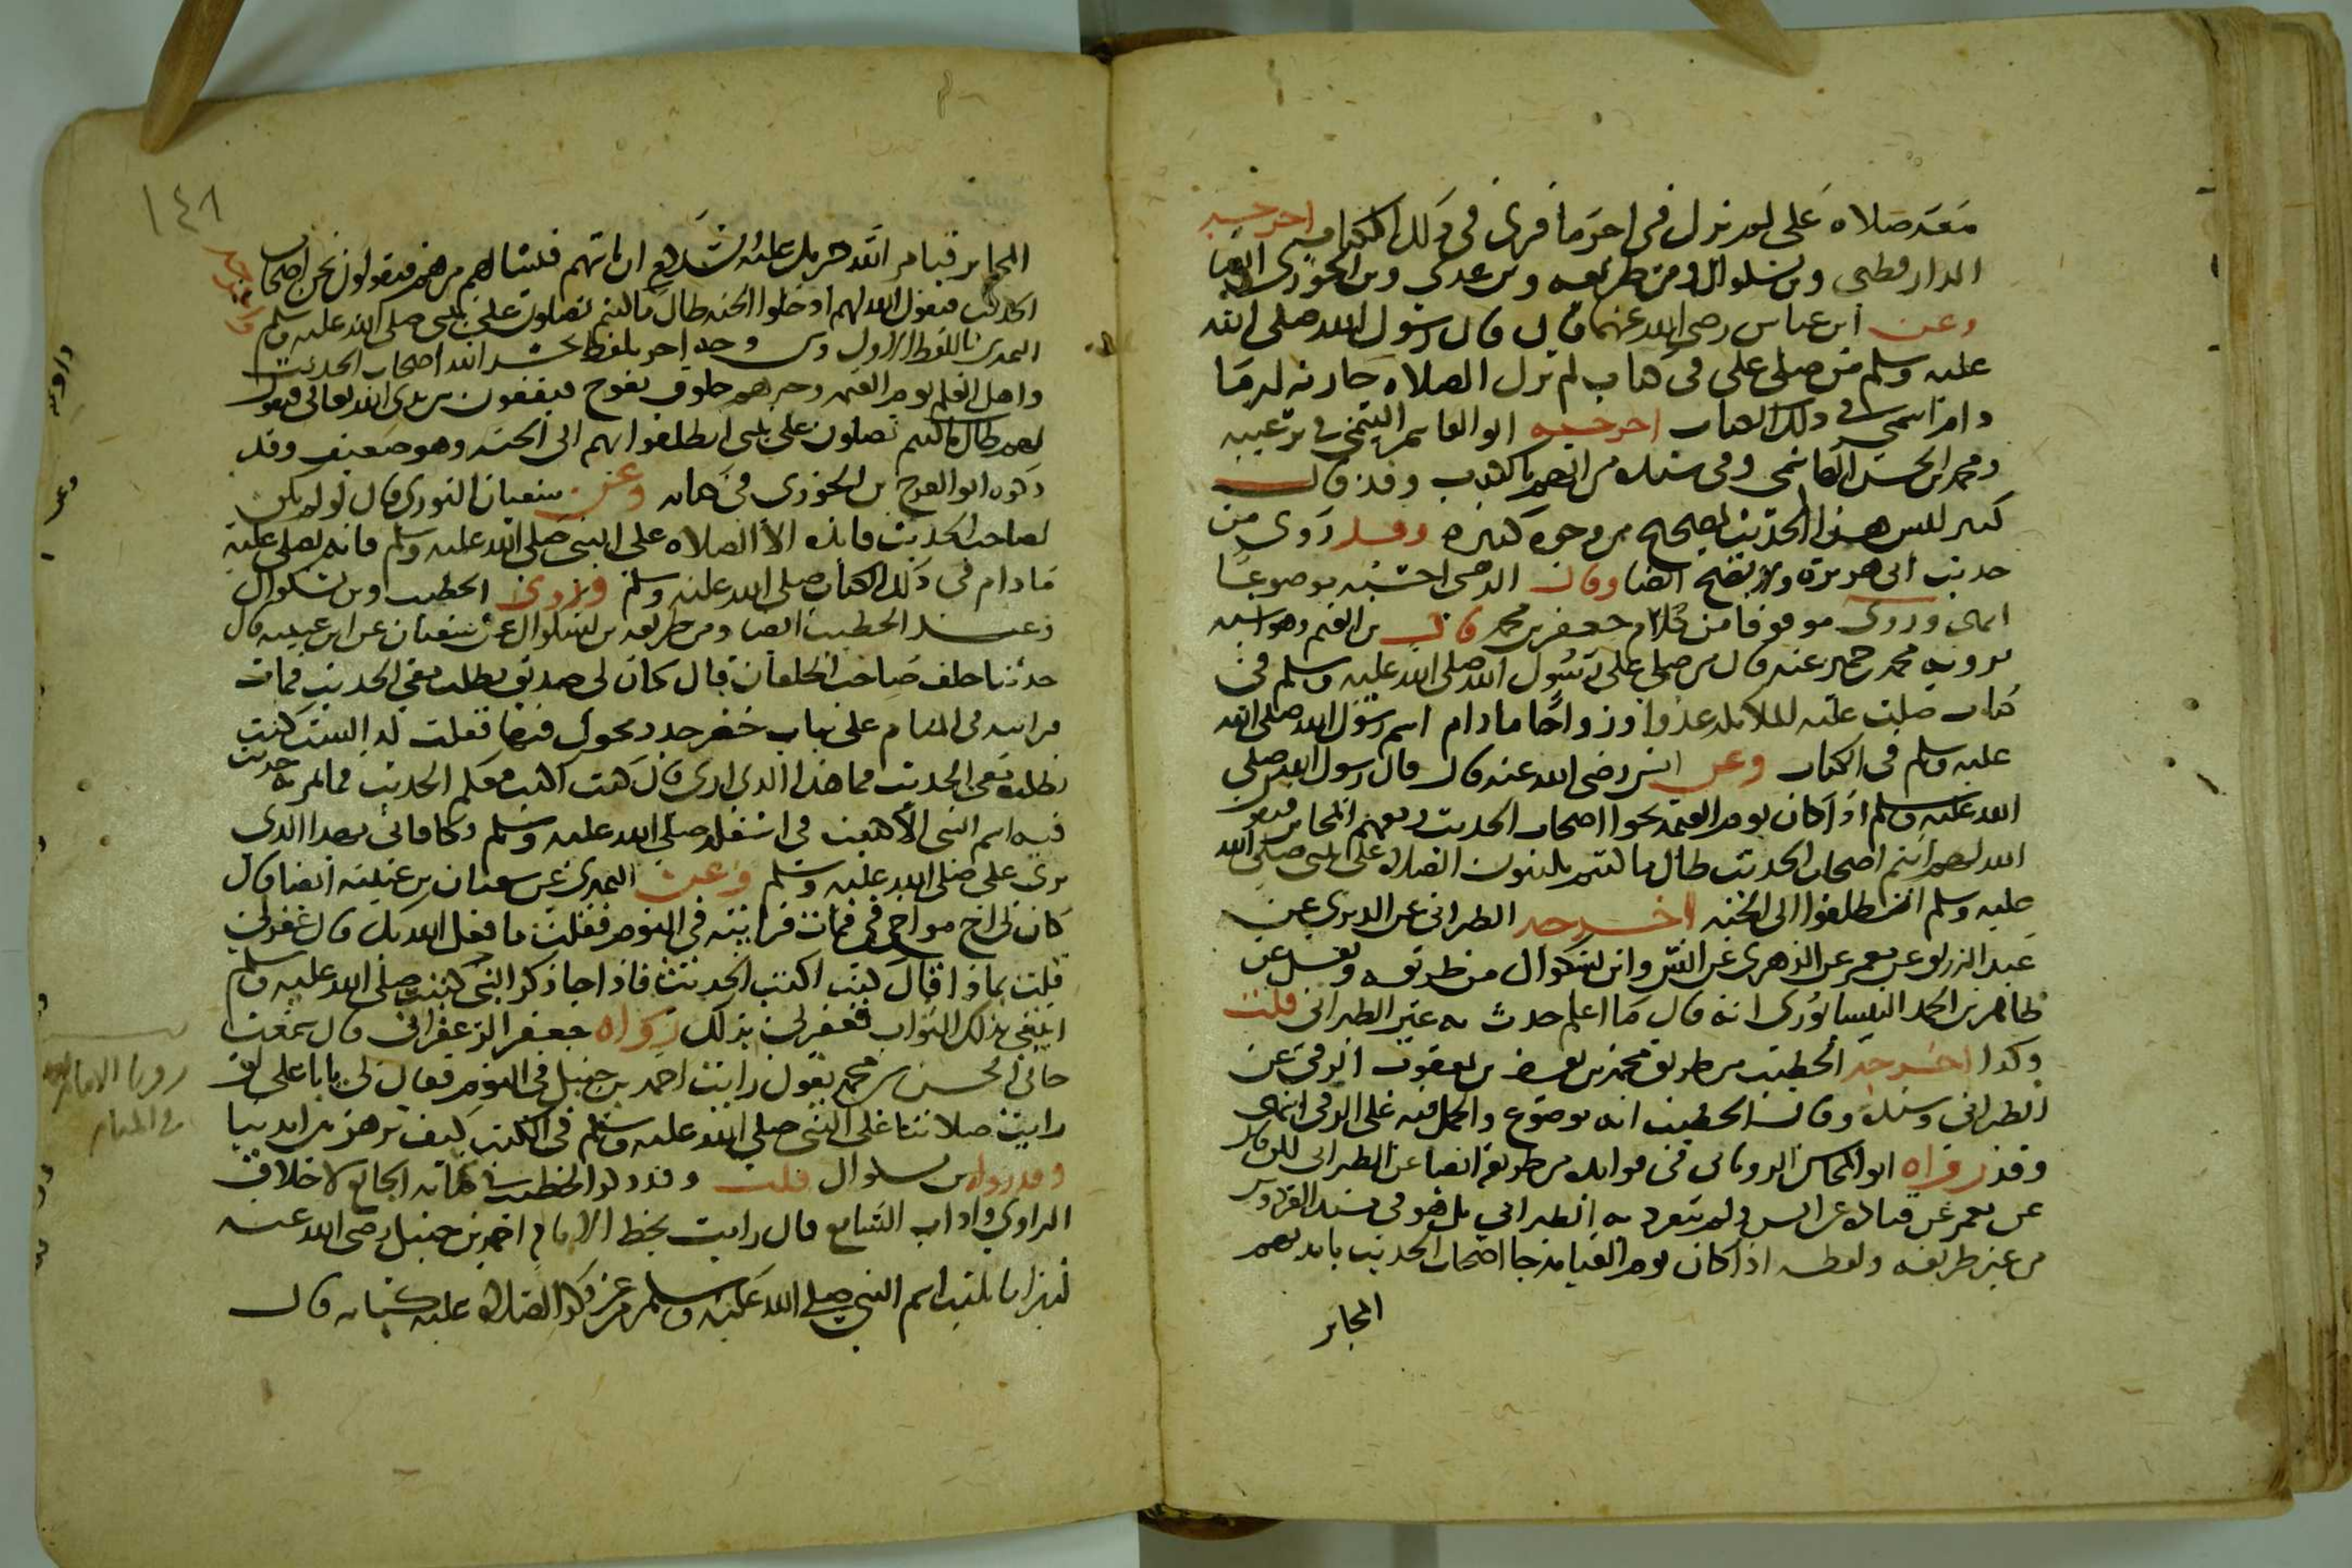 معه صلاة علي لم يزل في اجر ما قرئ في ذلك الكتاب اخرجه
الدارقطني وبن بشكوال ومن طريقه وبن عدي وبن الجوزي ايضا
وعن ابن عباس رضي الله عنهما قال قال رسول الله صلى الله
عليه وسلم من صلى علي في كتاب لم تزل الصلاه جاريه له ما
دام اسمي في ذلك الكتاب اخرجه ابو القاسم التيمي في ترغيبه
ومحمد بن الحسن الهاشمي وفي سنده من اتهم بالكذب وقد قال
كثير ليس هذا الحديث بصحيح من وجوه كثيره وقد روي من
حديث ابي هريرة ولا يصح ايضا وقال الذهبي احسبه موضوعا
انتهى وروي موقوفا من كلام جعفر بن محمد قال بن القيم وهو اشبه
يرويه محمد بن حمير عنه قال من صلى على رسول الله صلى الله عليه وسلم في
كتاب صلت عليه الملائكه غدوا ورواحا ما دام اسم رسول الله صلى الله
عليه وسلم في الكتاب وعن انس رضي الله عنه قال قال رسول الله صلى
الله عليه وسلم اذا كان يوم القيمه يجوا اصحاب الحديث ومعهم المحابر فيقول
الله لهم انتم اصحاب الحديث طال ما كنتم تكتبون الصلاة على النبي صلى الله
عليه وسلم انطلقوا الى الجنه اخرجه الطبراني عن الدبري عن
عبد الرزاق عن معمر عن الزهري عن انس وابن بشكوال من طريقه ونقل عن
طاهر بن احمد النيسابوري انه قال ما اعلم حدث به غير الطبراني قلت
وكذا اخرجه الخطيب من طريق محمد بن يوسف بن يعقوب الرقي عن
الطبراني وسنده وقال الخطيب انه موضوع والحمل فيه على الرقي انتهى
وقد رواه ابو المحاسن الروياني في فوايده من طريقه ايضا عن الطبراني لكن قال
عن معمر عن قتاده عن انس ولم يتفرد به الطبراني بل هو في مسند الفردوس
من غير طريقه ولفظه اذا كان يوم القيامه جا اصحاب الحديث بايديهم
المحابر
١٤٨
المحابر فيامر الله جبريل عليه السلام ان ياتهم فيسالهم من هم فيقولون نحن اصحاب
الحديث فيقول الله لهم ادخلوا الجنه طال ما كنتم تصلون على نبيي صلى الله عليه وسلم
النميري باللفظ الاول وفي وجه اخر بلفظ يحشر الله اصحاب الحديث
واهل العلم يوم القيمه وحبرهم خلوق يفوح فيقفون بين يدي الله تعالى فيقول
لهم طال ما كنتم تصلون على نبيي انطلقوا بهم الى الجنه وهو ضعيف وقد
ذكره ابو الفرج بن الجوزي في كتابه وعن سفيان الثوري قال لو لم يكن
لصاحب الحديث فائده الا الصلاه على النبي صلى الله عليه وسلم فانه يصلى عليه
ما دام في ذلك الكتاب صلى الله عليه وسلم وروى الخطيب وبن بشكوال
وعند الخطيب ايضا ومن طريقه بن بشكوال عن سفيان عن ابن عيينه قال
حدثنا خلف صاحب الخلقان قال كان لي صديق يطلب معي الحديث فمات
فرايته في المنام على ثياب خضر جدد يجول فيها فقلت له الست كنت
تطلب معي الحديث فما هذا الذي ارى قال كنت اكتب معكم الحديث فما مر به حديث
فيه اسم النبي الا كتبت في اسفله صلى الله عليه وسلم وكافاني بهذا الذي
ترى علي صلى الله عليه وسلم وعن النميري عن سفيان بن عيينه ايضا قال
كان لي اخ مواخي في فمات فرايته في النوم فقلت ما فعل الله بك قال غفر لي
قلت بماذا قال كنت اكتب الحديث فاذا جا ذكر النبي كتبت صلى الله عليه وسلم
ابتغي بذلك الثواب فغفر لي بذلك رواه جعفر الزعفراني قال سمعت
خالي الحسن بن محمد يقول رايت احمد بن حنبل في النوم فقال لي يا ابا علي لو
رايت صلاتنا على النبي صلى الله عليه وسلم في الكتب كيف تزهر بين ايدينا
وقد رواه بن بشكوال قلت وقد ذكر الخطيب في كتابه الجامع لاخلاق
الراوي واداب السامع قال رايت بخط الامام احمد بن حنبل رضي الله عنه
كثيرا ما يكتب اسم النبي صلى الله عليه وسلم من غير ذكر الصلاة عليه كتابه قال
رويا الامام
في المنام